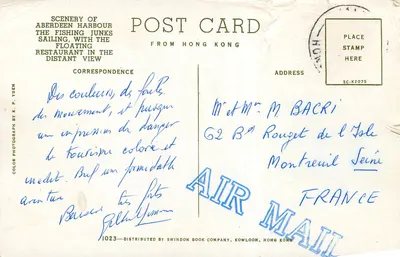 SCENERY OF
ABERDEEN HARBOUR
THE FISHING JUNKS
SAILING, WITH THE
FLOATING
RESTAURANT IN THE
DISTANT VIEW
POST CARD
FROM HONG KONG
CORRESPONDENCE
ADDRESS
PLACE
STAMP
HERE
HONG
COLOR PHOTOGRAPH BY
Des couleurs, de
du mouvement, et presque
un impression de danger
le tourisme coloré et
inédit. Bref un formidable
aventure
Baisers très forts
Mr et Mme M BACRI
62 Bd Rouget de l'Isle
Montreuil Seine
FRANCE
AIR MAIL
1023—DISTRIBUTED BY SWINDON BOOK COMPANY, KOWLOON, HONG KONG